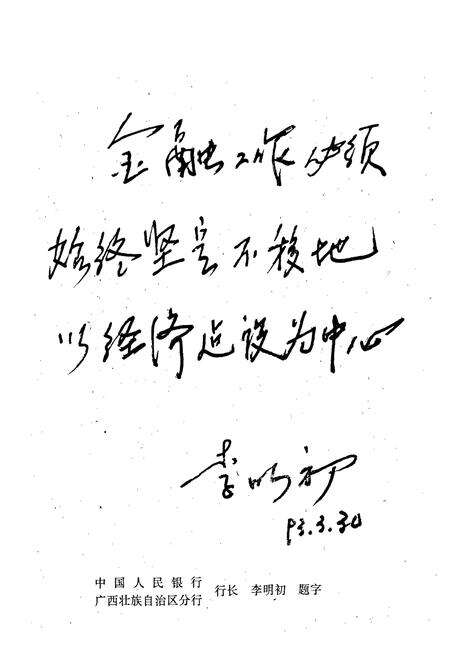 金融工作必须
始终坚定不移地
以经济建设为中心
李明初
93.3.30
中国人民银行
广西壮族自治区分行 行长 李明初 题字